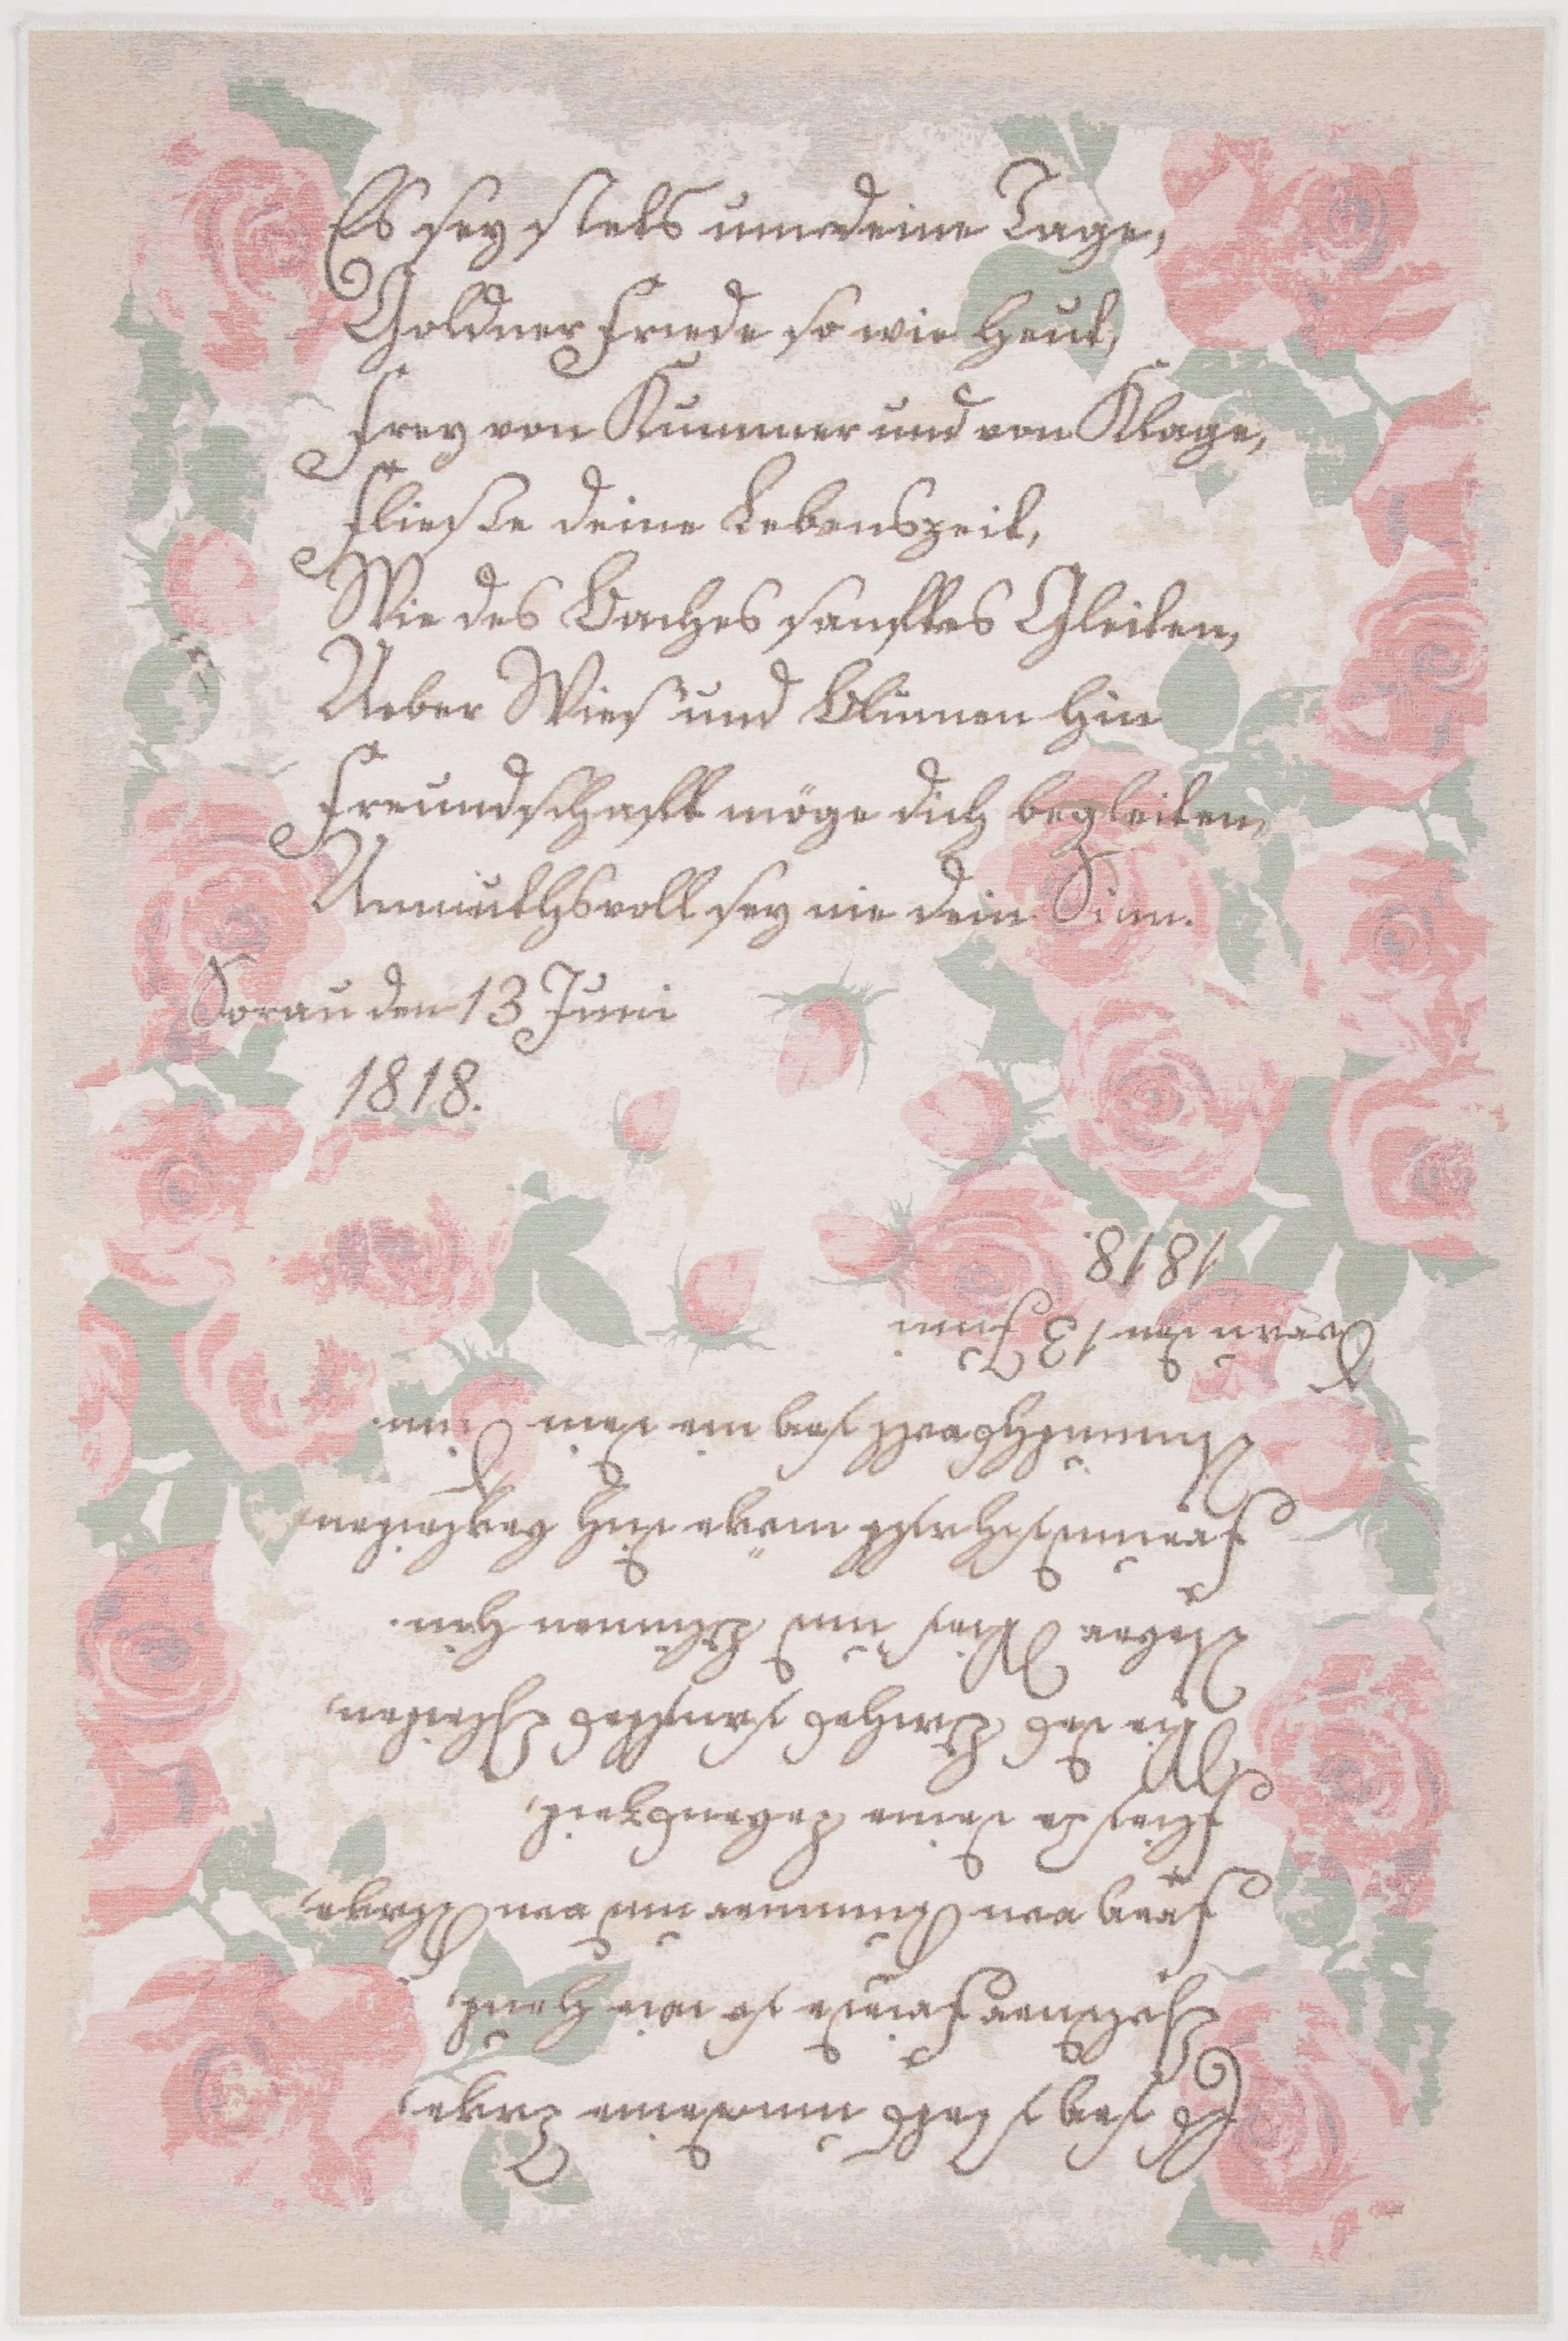 Es sey stets um deine Tage,
Goldner Friede so wie heut,
Frey von Kummer und von Klage,
Fließe deine Lebenszeit,
Wie des Baches sanftes Gleiten,
Ueber Wies' und Blumen hin
Freundschafft möge dich begleiten,
Unmuthsvoll sey nie dein Sinn.
Sorau den 13 Juni
1818.
Es sey stets um deine Tage,
Goldner Friede so wie heut,
Frey von Kummer und von Klage,
Fließe deine Lebenszeit,
Wie des Baches sanftes Gleiten,
Ueber Wies' und Blumen hin.
Freundschafft möge dich begleiten,
Unmuthsvoll sey nie dein Sinn.
Sorau den 13 Juni
1818.